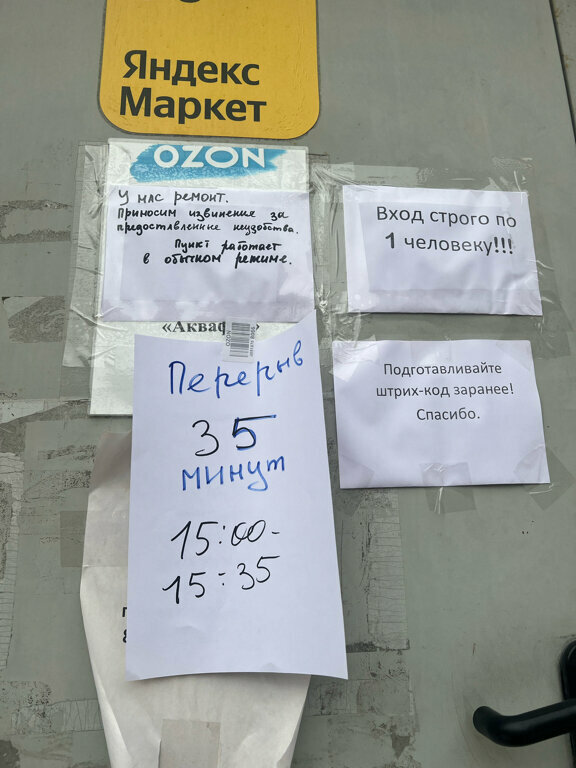 Яндекс
Маркет
OZON
У нас ремонт.
Приносим извинение за
предоставленные неудобства.
Пункт работает
в обычном режиме.
Вход строго по
1 человеку!!!
Подготавливайте
штрих-код заранее!
Спасибо.
Перерыв
35
минут
15:00-
15:35